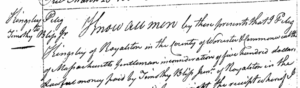 Kingsley Perley
to
Timothy Bliss Jr
Know all men by these presents that I Perley
Kingsley of Royalston in the county of Worcester & Commonwealth
of Massachusetts Gentleman in consideration of five hundred dollars
lawful money paid by Timothy Bliss Junr of Royalston in the
the receipt whereof I